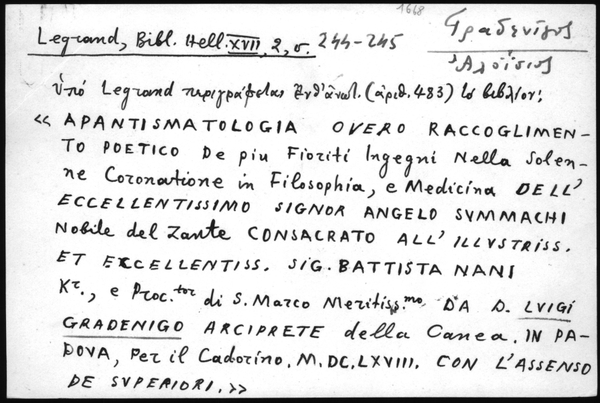 1668
Γραδενίγος
Ἀλοΐσιος
Legrand, Bibl. Hell. XVII, 2, σ. 244-245
ὑπό Legrand περιγράφεται ἐνθ' ἀνωτ. (ἀριθ. 483) τὸ βιβλίον:
« APANTISMATOLOGIA OVERO RACCOGLIMEN-
TO POETICO De piu Fioriti Ingegni Nella Solen-
ne Coronatione in Filosophia, e Medicina DELL'
ECCELLENTISSIMO SIGNOR ANGELO SVMMACHI
Nobile del Zante CONSACRATO ALL' ILLVSTRISS.
ET EXCELLENTISS. SIG. BATTISTA NANI
Kr., e Proc.tor di S. Marco Meritiss.mo DA D. LVIGI
GRADENIGO ARCIPRETE della Canea. IN PA-
DOVA, Per il Cadorino. M.DC.LXVIII. CON L'ASSENSO
DE SVPERIORI.»